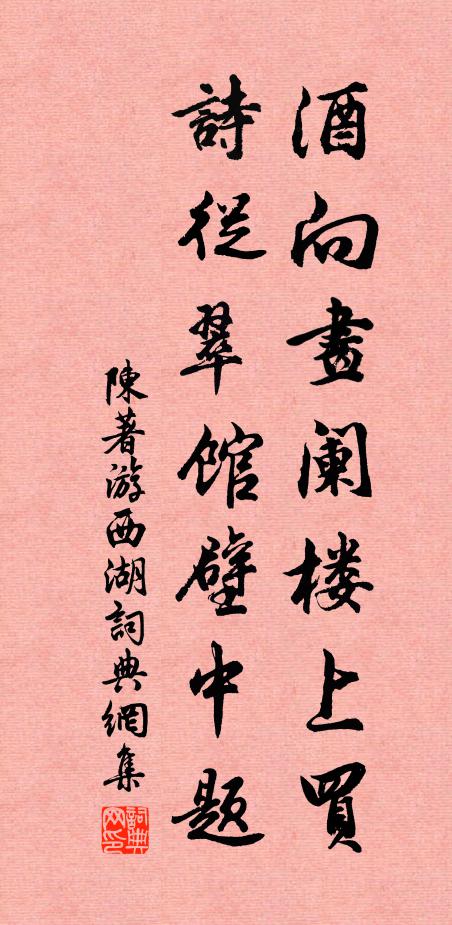 酒向畫阑楼上買
詩從翠馆壁中题
陳著游西湖詞典網集
詞典网印